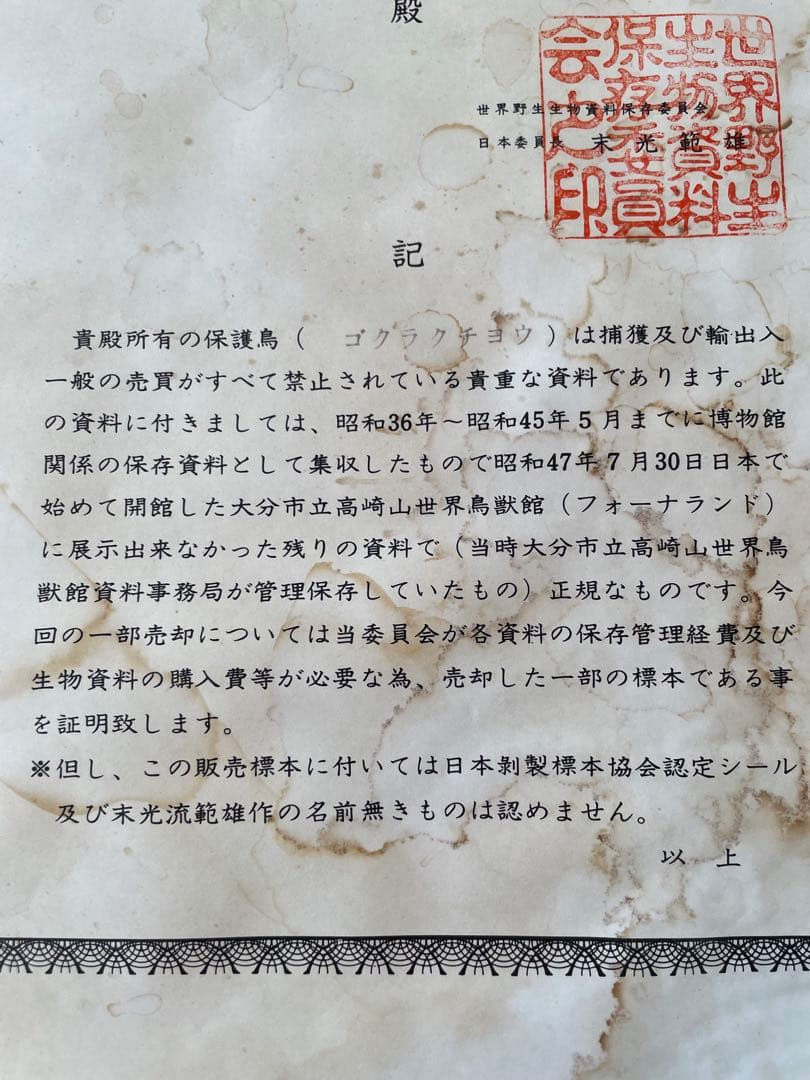 殿
世界野生生物資料保存委員会
日本委員長 末光範雄
世界野生
生物資料
保存委員
会之印
記
貴殿所有の保護鳥(ゴクラクチヨウ)は捕獲及び輸出入
一般の売買がすべて禁止されている貴重な資料であります。此
の資料に付きましては、昭和36年〜昭和45年5月までに博物館
関係の保存資料として集収したもので昭和47年7月30日日本で
始めて開館した大分市立高崎山世界鳥獣館(フォーナランド)
に展示出来なかった残りの資料で(当時大分市立高崎山世界鳥
獣館資料事務局が管理保存していたもの)正規なものです。今
回の一部売却については当委員会が各資料の保存管理経費及び
生物資料の購入費等が必要な為、売却した一部の標本である事
を証明致します。
※但し、この販売標本に付いては日本剥製標本協会認定シール
及び末光流範雄作の名前無きものは認めません。
以上